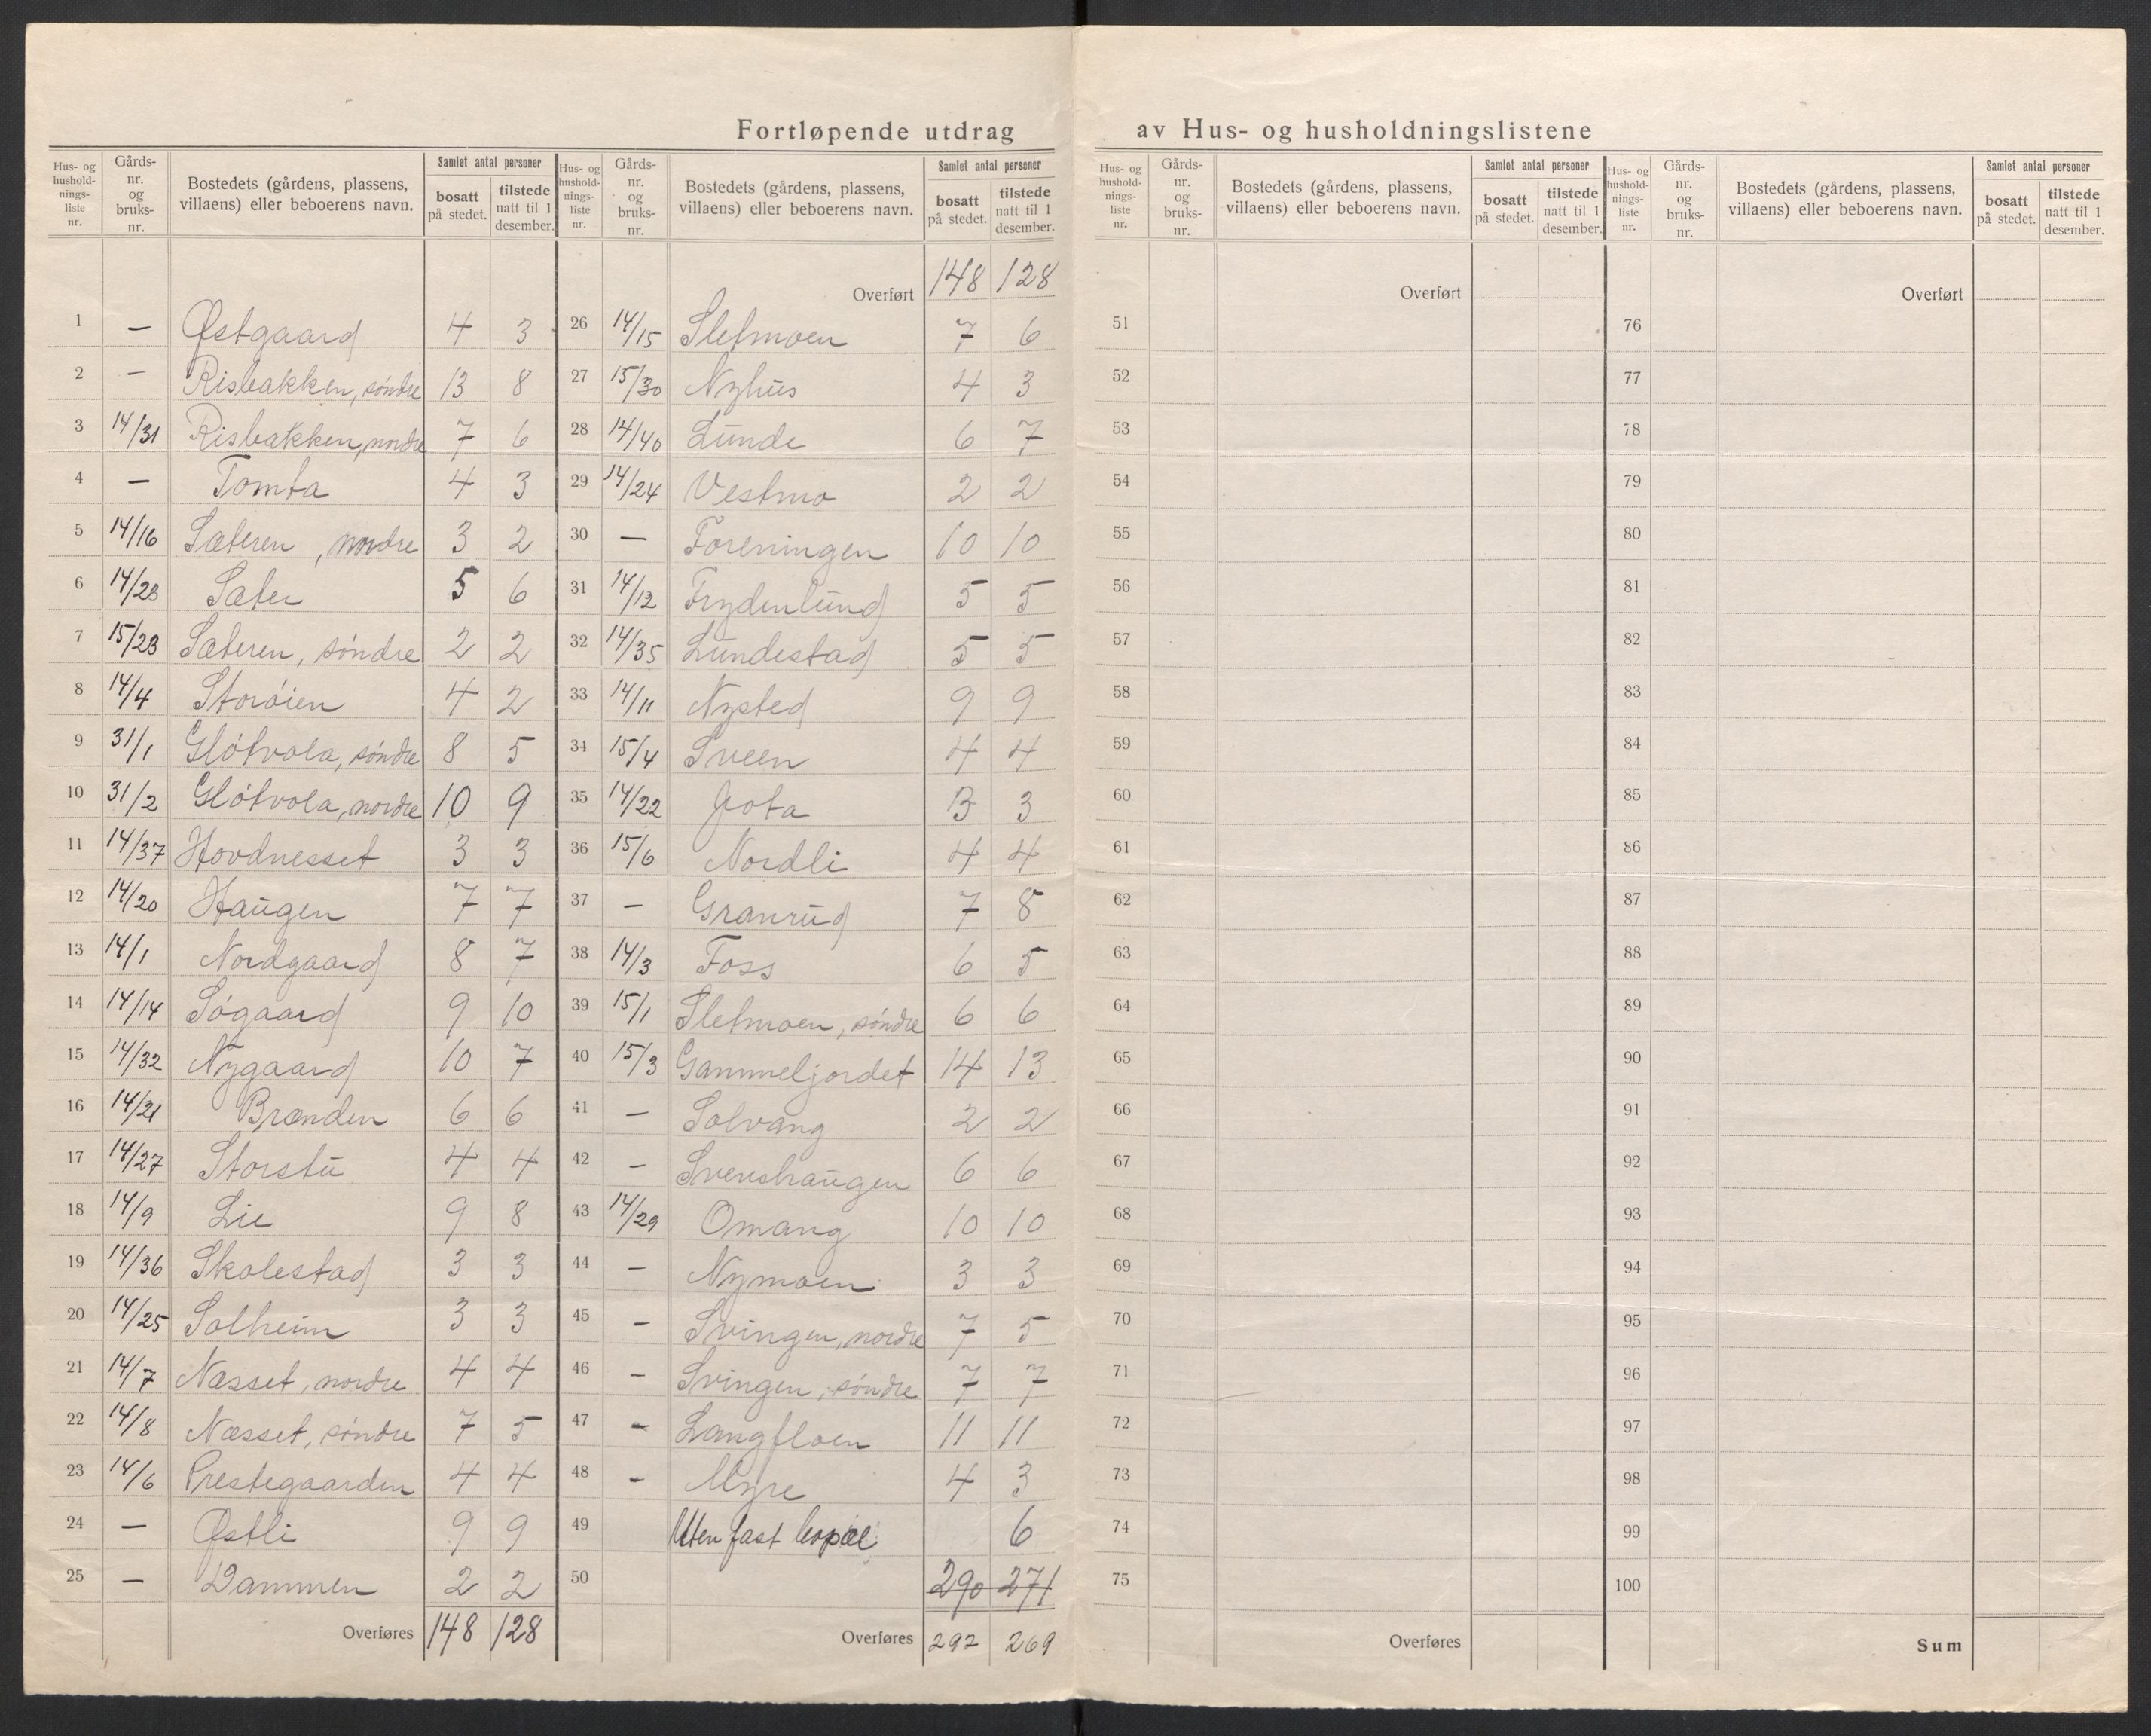 Fortløpende utdrag av Hus- og husholdningslistene
Hus- og hushold- nings- liste nr. | Gårds- nr. og bruks- nr. | Bostedets (gårdens, plassens, villaens) eller beboerens navn. | Samlet antal personer | bosatt på stedet. | tilstede natt til 1 desember.
1 — Østgaard 4 3
2 — Risbakken, søndre 13 8
3 14/31 Risbakken, nordre 7 6
4 — Tomta 4 3
5 14/16 Sæteren, nordre 3 2
6 14/28 Sæter 5 6
7 15/28 Sæteren, søndre 2 2
8 14/4 Storøien 4 2
9 31/1 Gløtvola, søndre 8 5
10 31/2 Gløtvola, nordre 10 9
11 14/37 Hovdnesset 3 3
12 14/20 Haugen 7 7
13 14/1 Nordgaard 8 7
14 14/14 Søgaard 9 10
15 14/32 Nygaard 10 7
16 14/21 Brænden 6 6
17 14/27 Storstu 4 4
18 14/9 Lie 9 8
19 14/36 Skolestad 3 3
20 14/25 Solheim 3 3
21 14/7 Næsset, nordre 4 4
22 14/8 Næsset, søndre 7 5
23 14/6 Prestegaarden 4 4
24 — Østli 9 9
25 — Dammen 2 2
Overføres 148 128
Hus- og hushold- nings- liste nr. | Gårds- nr. og bruks- nr. | Bostedets (gårdens, plassens, villaens) eller beboerens navn. | Samlet antal personer | bosatt på stedet. | tilstede natt til 1 desember.
Overført 148 128
26 14/15 Sletmoen 7 6
27 15/30 Nyhus 4 3
28 14/40 Lunde 6 7
29 14/24 Vestmo 2 2
30 — Foreningen 10 10
31 14/12 Frydenlund 5 5
32 14/35 Lundestad 5 5
33 14/11 Nysted 9 9
34 15/4 Sveen 4 4
35 14/22 Jota 3 3
36 15/6 Nordli 4 4
37 — Granrud 7 8
38 14/3 Foss 6 5
39 15/1 Sletmoen, søndre 6 6
40 15/3 Gammeljordet 14 13
41 — Solvang 2 2
42 — Svenshaugen 6 6
43 14/29 Omang 10 10
44 — Nymoen 3 3
45 — Svingen, nordre 7 5
46 — Svingen, søndre 7 7
47 — Langfloen 11 11
48 — Myre 4 3
49 Uten fast bopæl 6
50 290 271
Overføres 292 269
Hus- og hushold- nings- liste nr. | Gårds- nr. og bruks- nr. | Bostedets (gårdens, plassens, villaens) eller beboerens navn. | Samlet antal personer | bosatt på stedet. | tilstede natt til 1 desember.
Overført
51
52
53
54
55
56
57
58
59
60
61
62
63
64
65
66
67
68
69
70
71
72
73
74
75
Overføres
Hus- og hushold- nings- liste nr. | Gårds- nr. og bruks- nr. | Bostedets (gårdens, plassens, villaens) eller beboerens navn. | Samlet antal personer | bosatt på stedet. | tilstede natt til 1 desember.
Overført
76
77
78
79
80
81
82
83
84
85
86
87
88
89
90
91
92
93
94
95
96
97
98
99
100
Sum